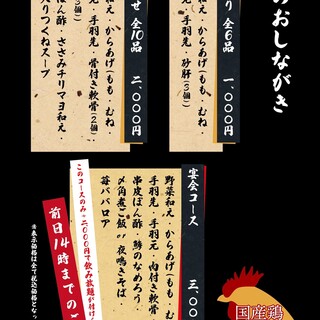 のおしながき
り 全6品 一、000円
和え・からあげ(もも・むね・
元・手羽先・砂肝(3個)
せ 全10品 二、000円
和え・からあげ(もも・むね・
元・手羽先・骨付き軟骨(2個)・
ぽん酢・ささみチリマヨ和え・
入りつくねスープ
宴会コース 三、000
野菜和え・からあげ(もも・む
手羽先・手羽元・肉付き軟骨
串皮ぽん酢・鯵のなめろう・
〆角煮ご飯or夜鳴きそば・
苺ババロア
このコースのみ+二、000円で飲み放題が付け
前日14時までのご
※表示価格は全て税込価格となっ
国産鶏